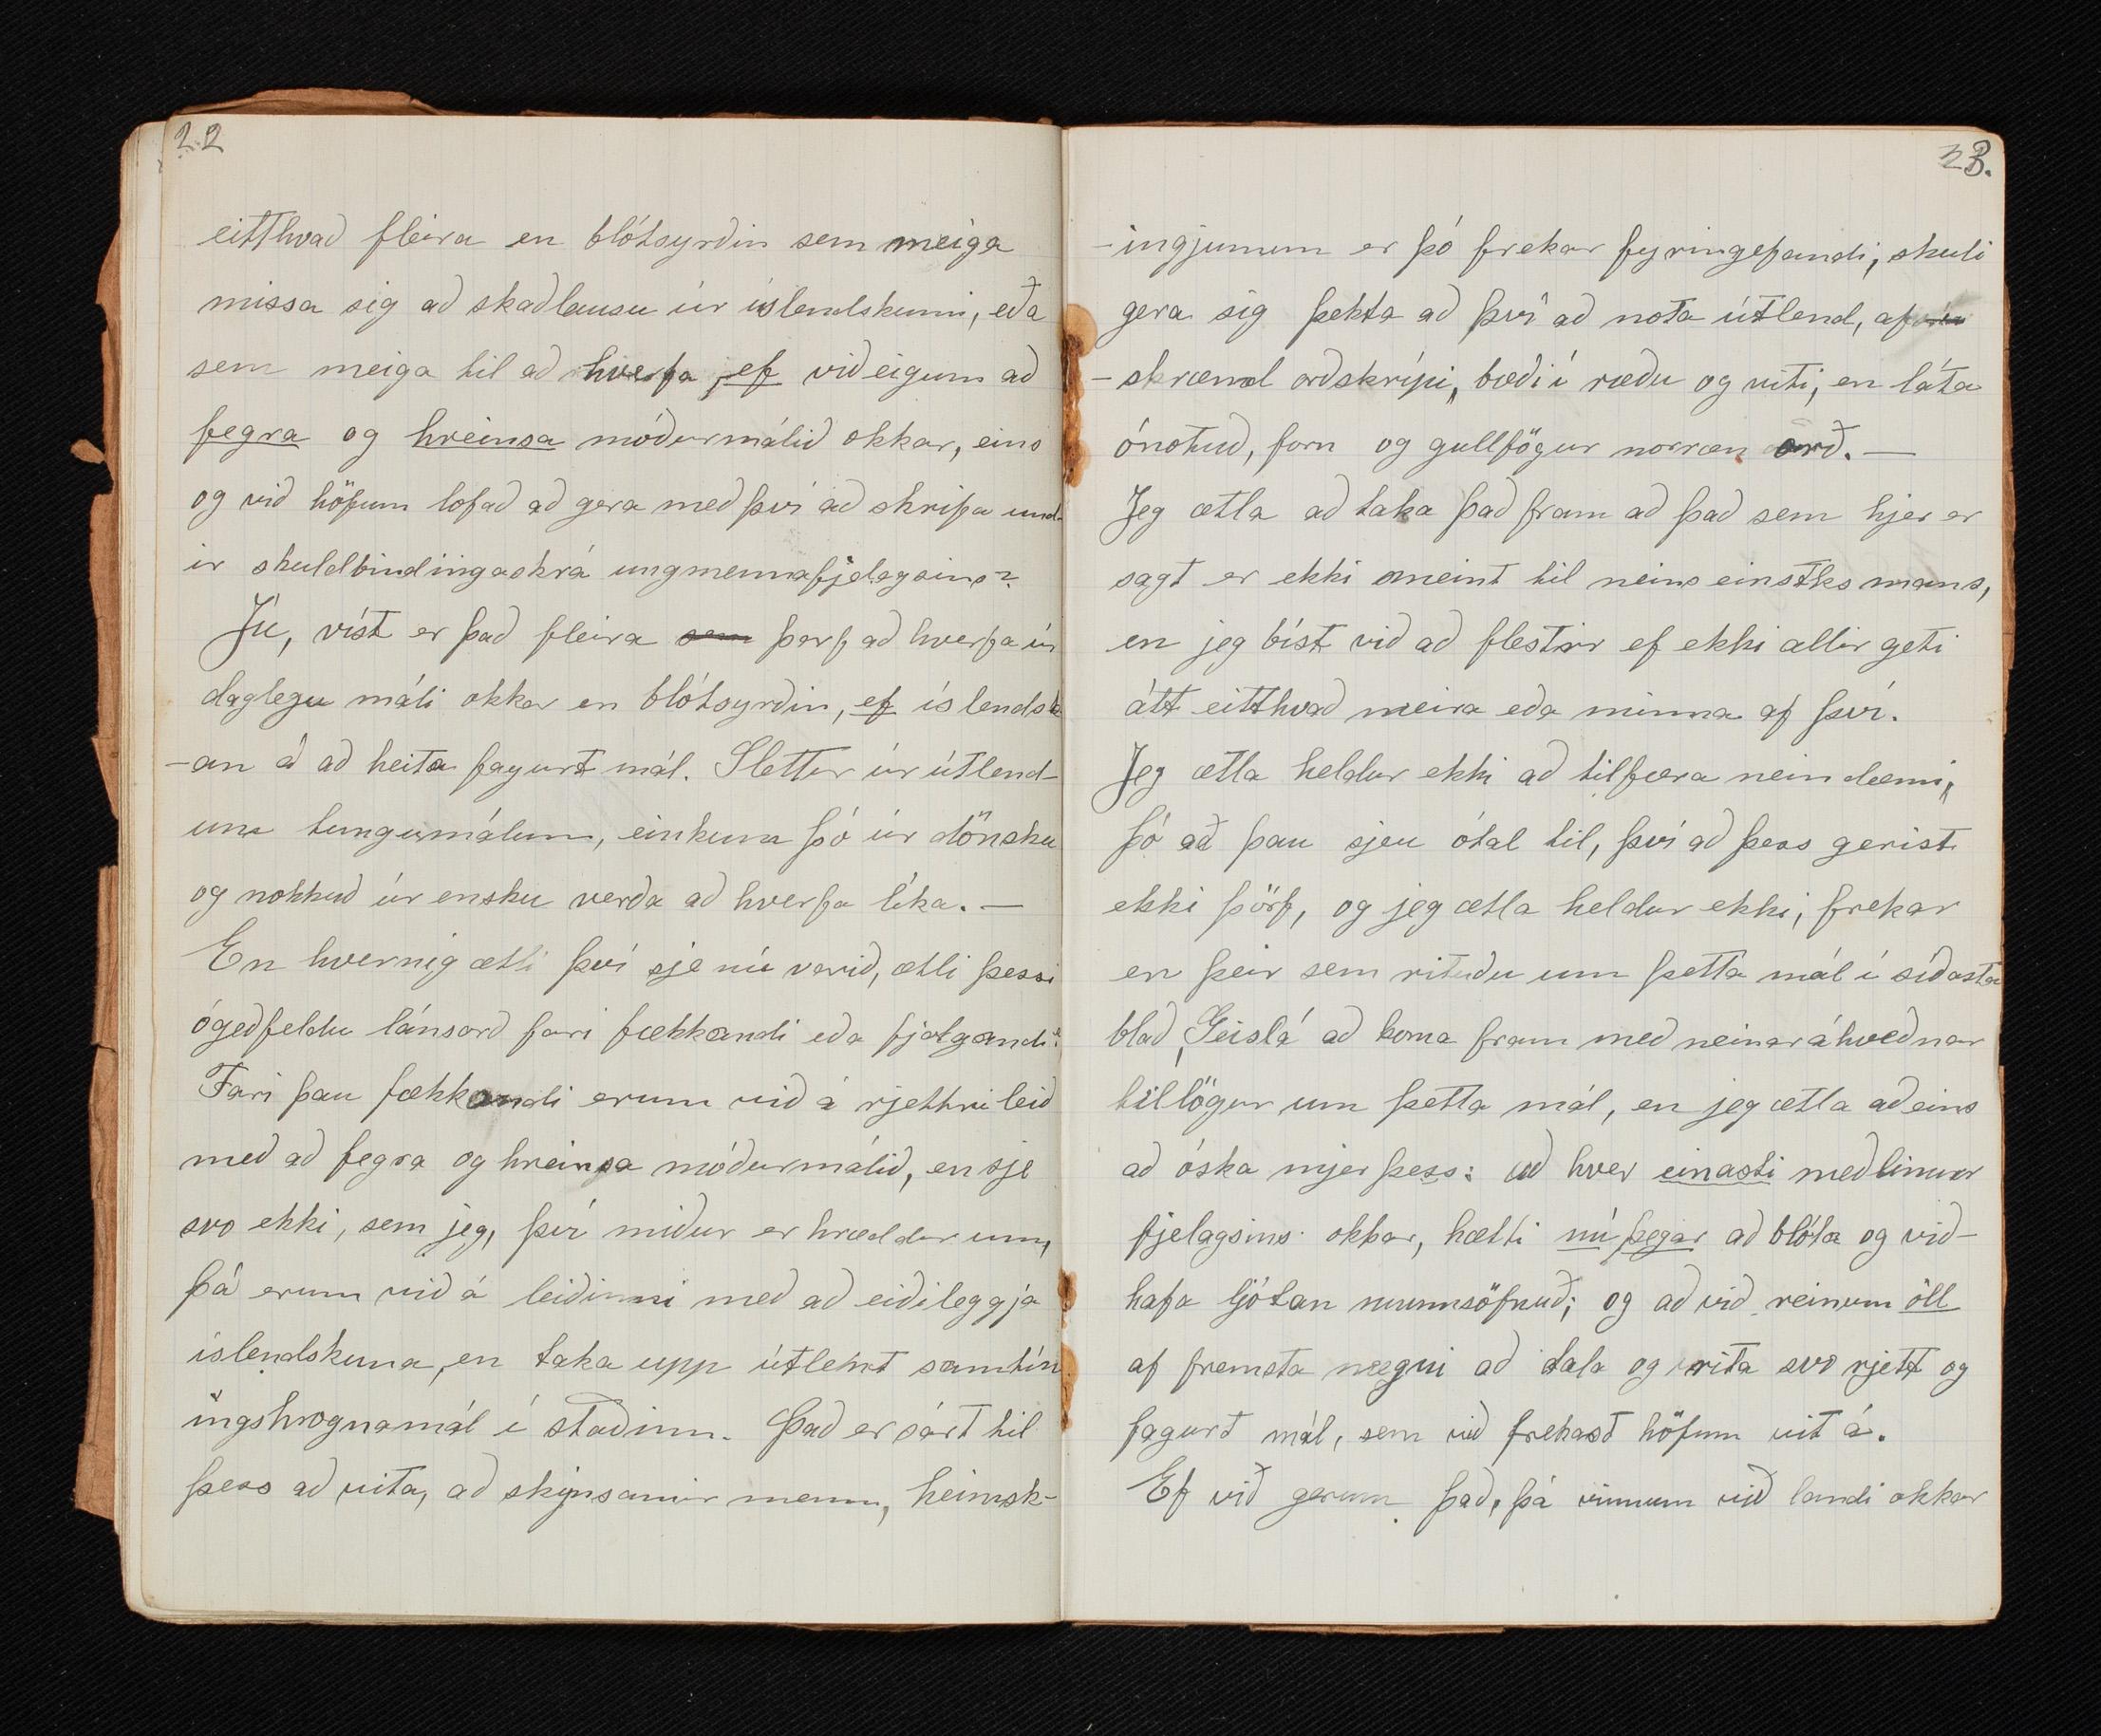 22
eitthvað fleira en blótsyrðin sem meiga
missa sig að skaðlausu úr íslendskunni, eða
sem meiga til að hverfa, ef við eigum að
fegra og hreinsa móðurmálið okkar, eins
og við höfum lofað að gera með því að skrifa und-
ir skuldbindingaskrá ungmennafjelagsins?
Jú, víst er það fleira sem þarf að hverfa úr
daglegu máli okkar en blótsyrðin, ef íslendsk
-an á að heita fagurt mál. Slettur úr útlend-
um tungumálum, einkum þó úr dönsku
og nokkuð úr ensku verða að hverfa líka. —
En hvernig ætli því sje nú varið, ætli þessi
ógeðfeldu lánsorð fari fækkandi eða fjölgandi?
Fari þau fækkandi erum við á rjettri leið
með að fegra og hreinsa móðurmálið, en sje
svo ekki, sem jeg, því miður er hræddur um,
þá erum við á leiðinni með að eiðileggja
íslendskuna, en taka upp útlent samtín
ingshrognamál í staðinn. Það er sárt til
þess að vita, að skynsamir menn, heimsk-
23.
-ingjunum er þó frekar fyringefandi, skuli
gera sig þekta að því að nota útlend, af
-skræmd orðskrípi, bæði í ræðu og riti, en láta
ónotuð, forn og gullfögur norræn orð. —
Jeg ætla að taka það fram að það sem hjer er
sagt er ekki meint til neins einstks mans,
en jeg bíst við að flestir ef ekki allir geti
átt eitthvað meira eða minna af því.
Jeg ætla heldur ekki að tilfæra nein dæmi,
þó að þau sjeu ótal til, því að þess gerist
ekki þörf, og jeg ætla heldur ekki, frekar
en þeir sem rituðu um þetta mál í síðasta
blað „Geisla" að koma fram með neinar ákveðnar
tillögur um þetta mál, en jeg ætla aðeins
að óska mjer þess: að hver einasti meðlimur
fjelagsins okkar, hætti nú þegar að blóta og við-
hafa ljótan munnsöfnuð; og að við reinum öll
af fremsta megni að tala og rita svo rjett og
fagurt mál, sem við frekast höfum vit á.
Ef við gerum það, þá vinnum við landi okkar